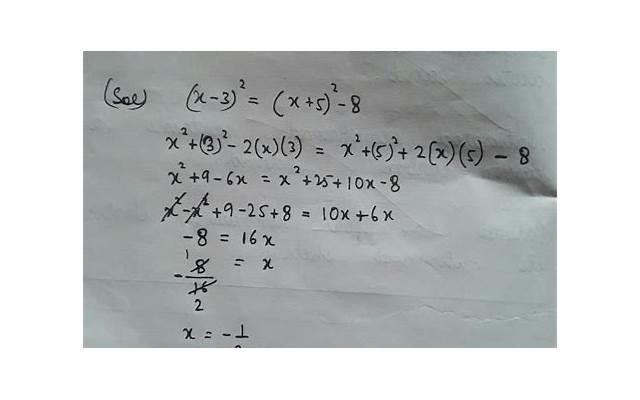 (Sol) (x-3)² = (x+5)² - 8
x² + (3)² - 2(x)(3) = x² + (5)² + 2(x)(5) - 8
x² + 9 - 6x = x² + 25 + 10x - 8
x² - x² + 9 - 25 + 8 = 10x + 6x
-8 = 16x
1
-8/16 = x
2
x = -1